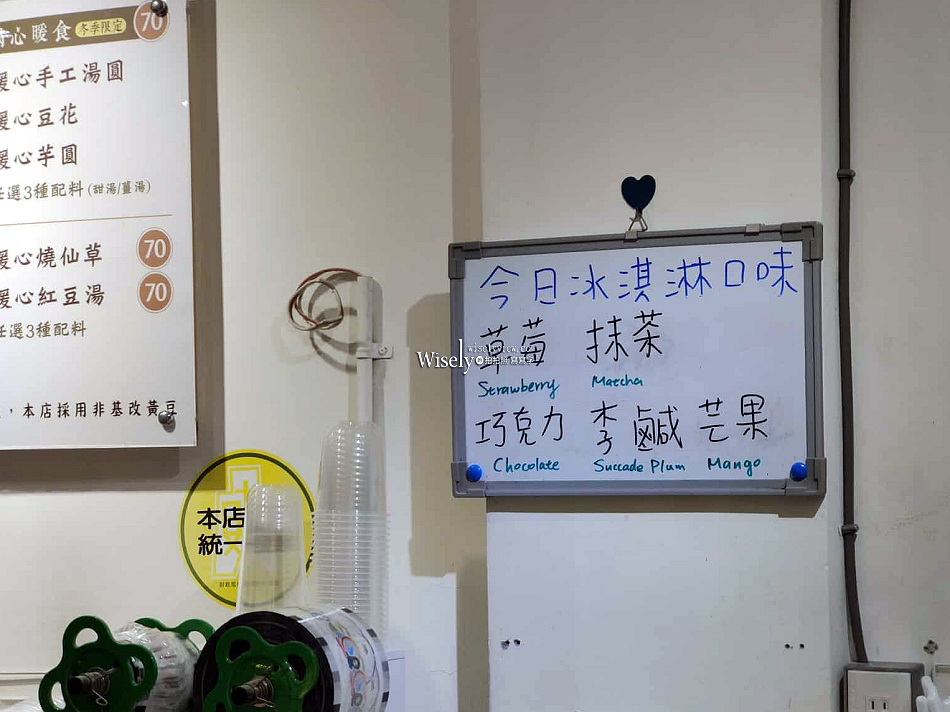 心暖食 冬季限定 70
暖心手工湯圓
暖心豆花
暖心芋圓
任選3種配料(甜湯/薑湯)
暖心燒仙草 70
暖心紅豆湯 70
任選3種配料
,本店採用非基改黃豆
本店
統一
今日冰淇淋口味
草莓 抹茶
Strawberry Matcha
巧克力 李鹹 芒果
Chocolate Succade Plum Mango
Wisely
wiselyview.com